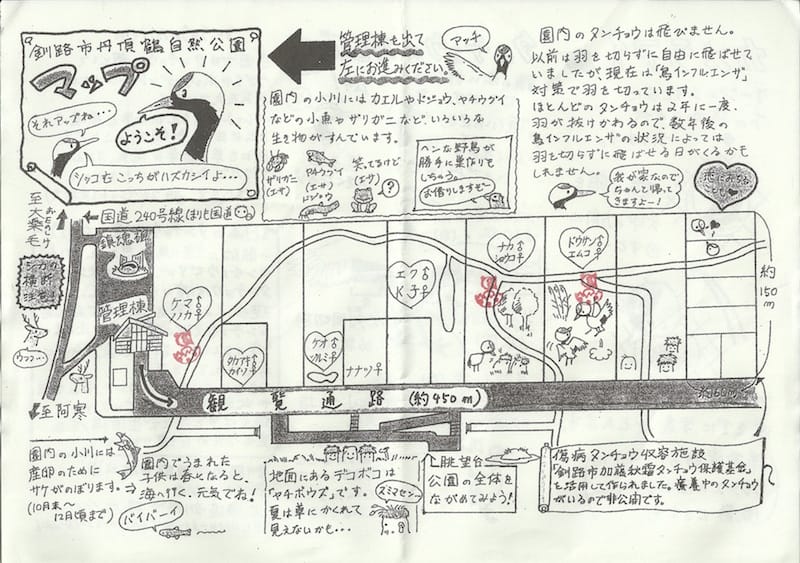 釧路市丹頂鶴自然公園
マップ
それアップね…
ようこそ!
シッコもこっちがハズカシイよ…
管理棟を出て
左にお進みください。
アッチ
園内の小川にはカエルやドジョウ、ヤチウグイ
などの小魚やザリガニなど、いろいろな
生き物がすんでいます。
ザリガニ
(エサ)
ヤチウグイ
(エサ)
ドジョウ
笑ってるけど
(エサ)
?
ヘンな野鳥が
勝手に巣作りも
しちゃう。
お借りしますぞ~
園内のタンチョウは飛びません。
以前は羽を切らずに自由に飛ばせて
いましたが、現在は「鳥インフルエンザ」
対策で羽を切っています。
ほとんどのタンチョウは2年に一度、
羽が抜けかわるので、数年後の
鳥インフルエンザの状況によっては
羽を切らずに飛ばせる日がくるかも
しれません。
我が家なので
ちゃんと帰って
きますよー!
恋におちる
ことも
至大楽毛
おたのしけ
国道240号線(まりも国道)
シカの
横断
注意!
ウフフ…
鎮魂碑
管理棟
ケマ♂
ノカ♀
タカアキ♂
カイソ♀
ケオ♂
ツルミ♀
ナナツ♀
エフ♂
K子♀
ナカ♂
ショウコ♀
ドウサン♂
エムコ♀
約
150
m
約60m
観覧通路(約450m)
至阿寒
園内の小川には
産卵のために
サケがのぼります。⇒
(10月末~
12月頃まで)
園内でうまれた
子供は春になると、
海へ行く。元気でね!
バイバーイ
地面にあるデコボコは
「ヤチボウズ」です。
夏は草にかくれて
見えないかも…
スミマセン…
眺望台
公園の全体を
ながめてみよう!
傷病タンチョウ収容施設
「釧路市加藤秋霜タンチョウ保護基金」
を活用して作られました。療養中のタンチョウ
がいるので非公開です。